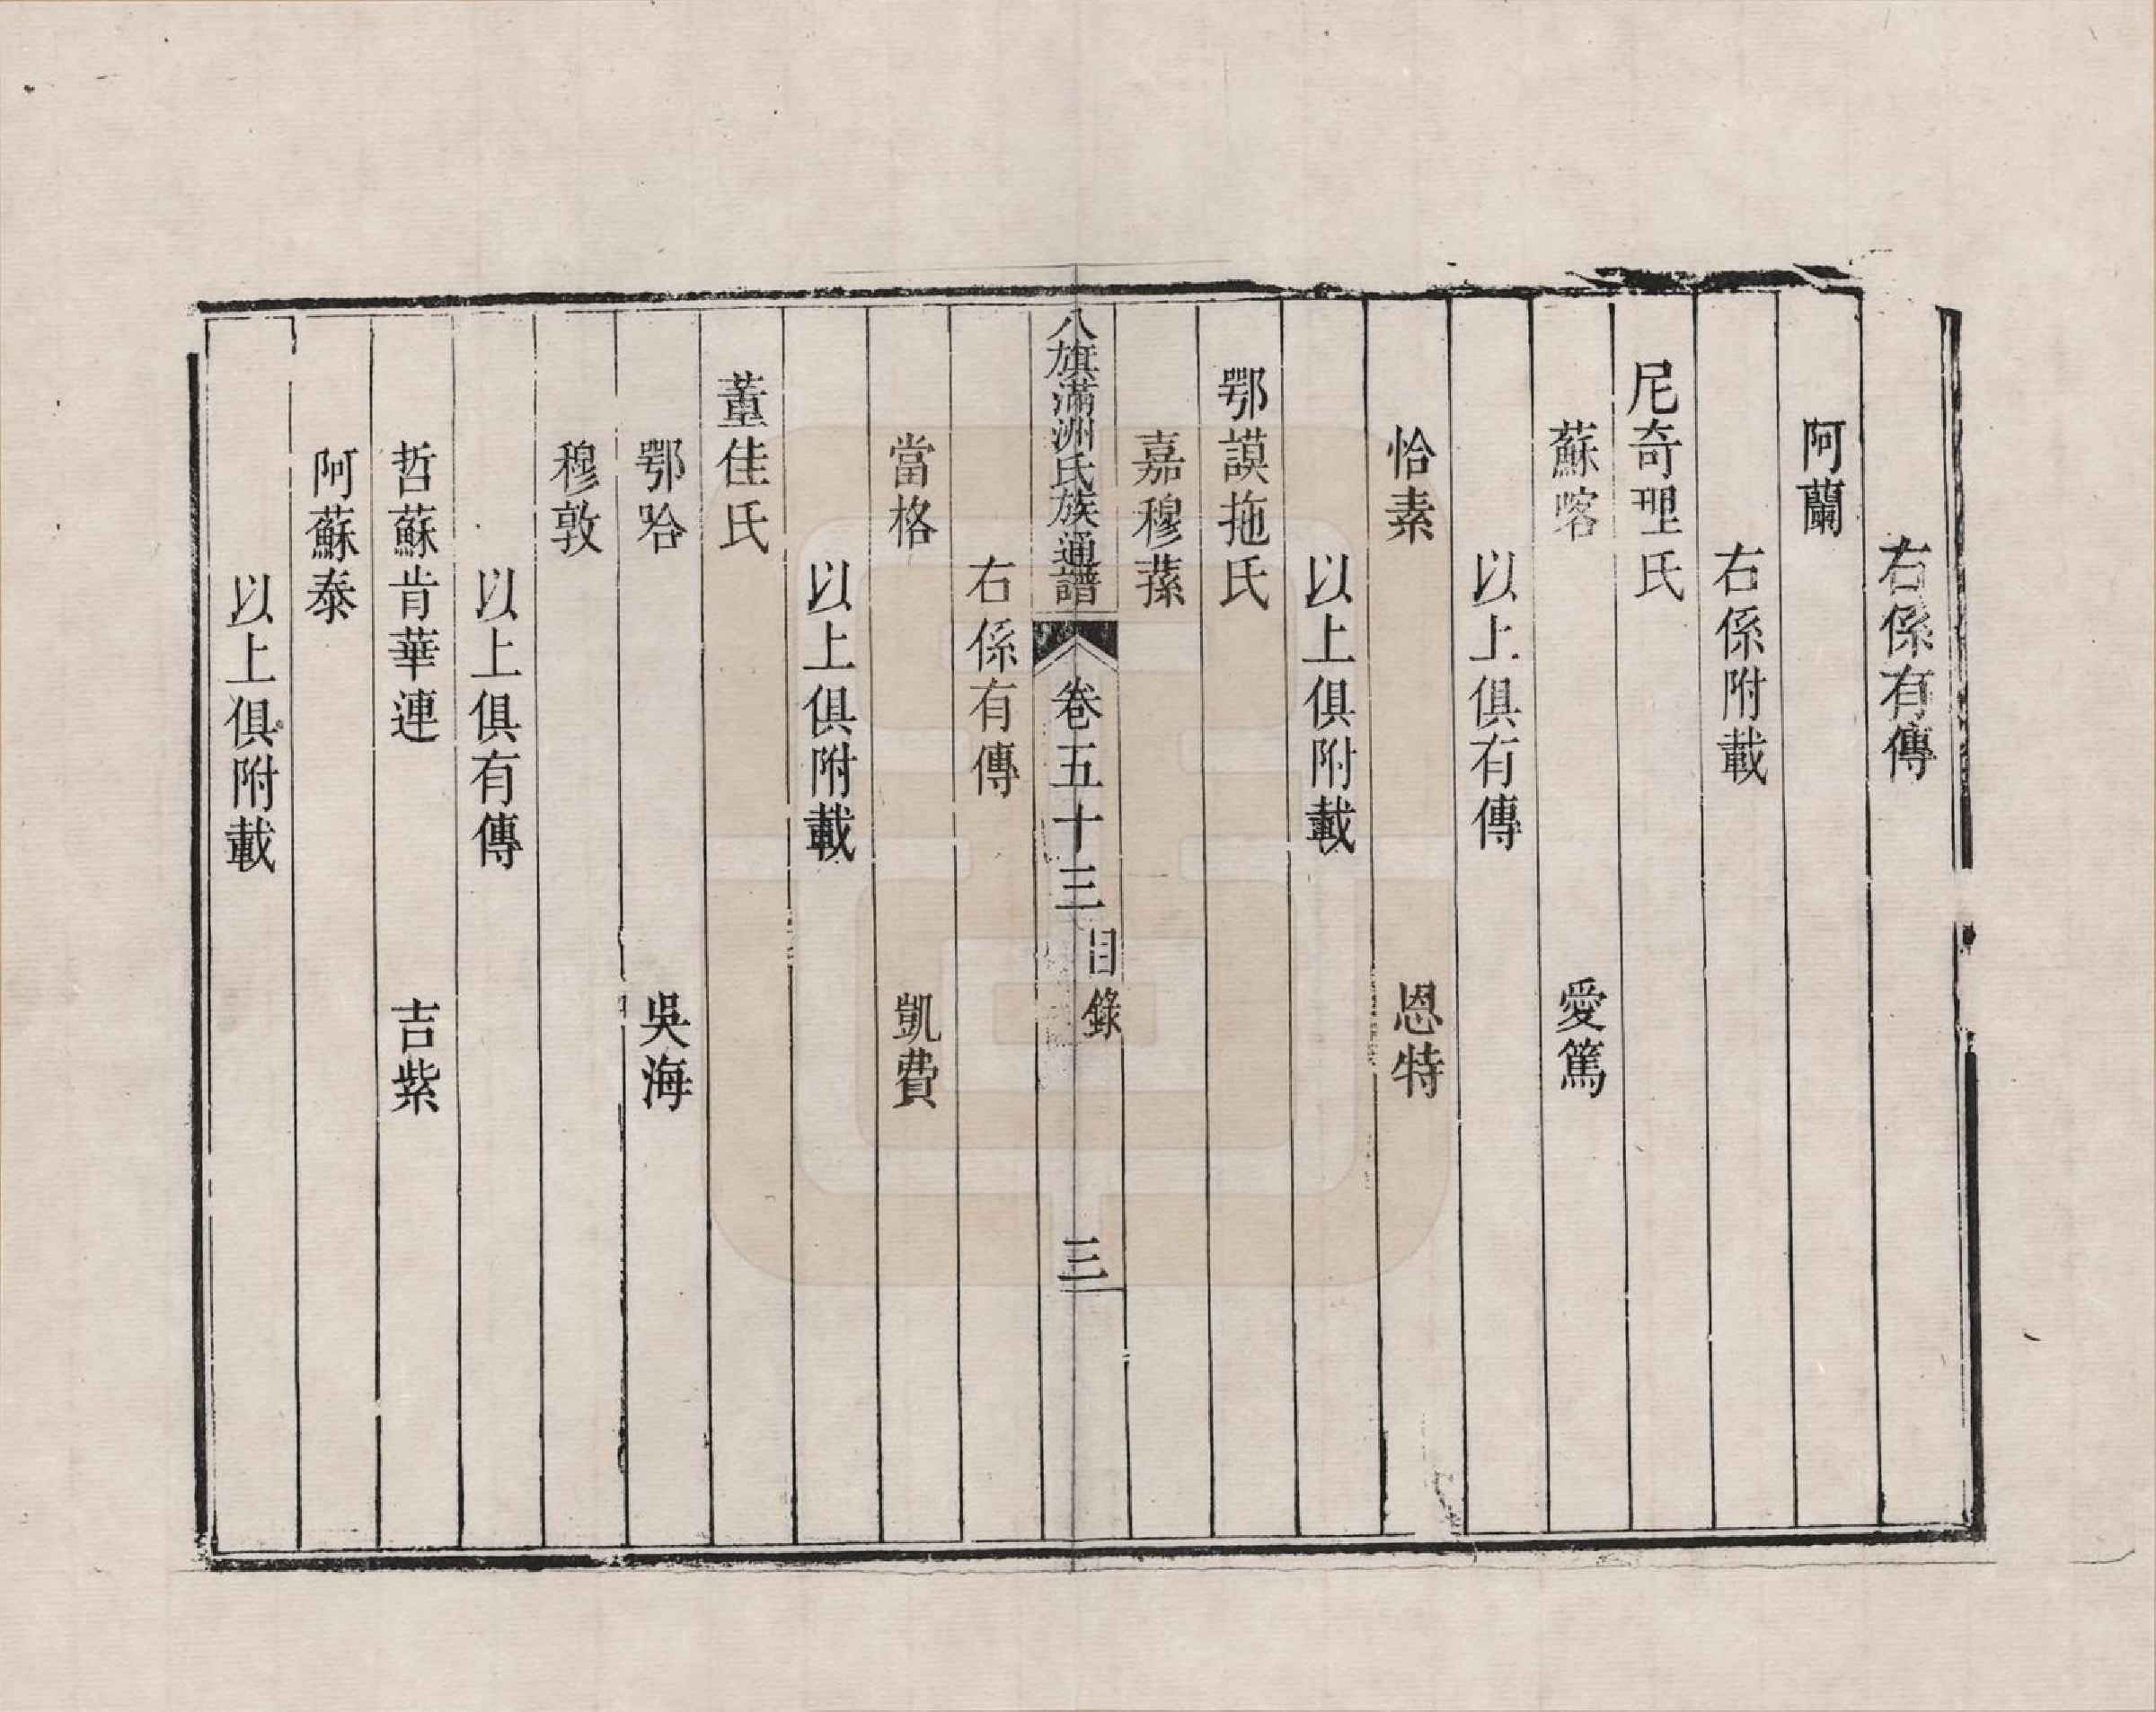 右係有傳
阿蘭
右係附載
尼奇哩氏
蘇喀 愛篤
以上俱有傳
恰素 恩特
以上俱附載
鄂謨拖氏
嘉穆蓀
八旗滿洲氏族通譜 卷五十三 目錄 三
右係有傳
當格 凱費
以上俱附載
董佳氏
鄂哈 吳海
穆敦
以上俱有傳
哲蘇肯華連 吉紫
阿蘇泰
以上俱附載